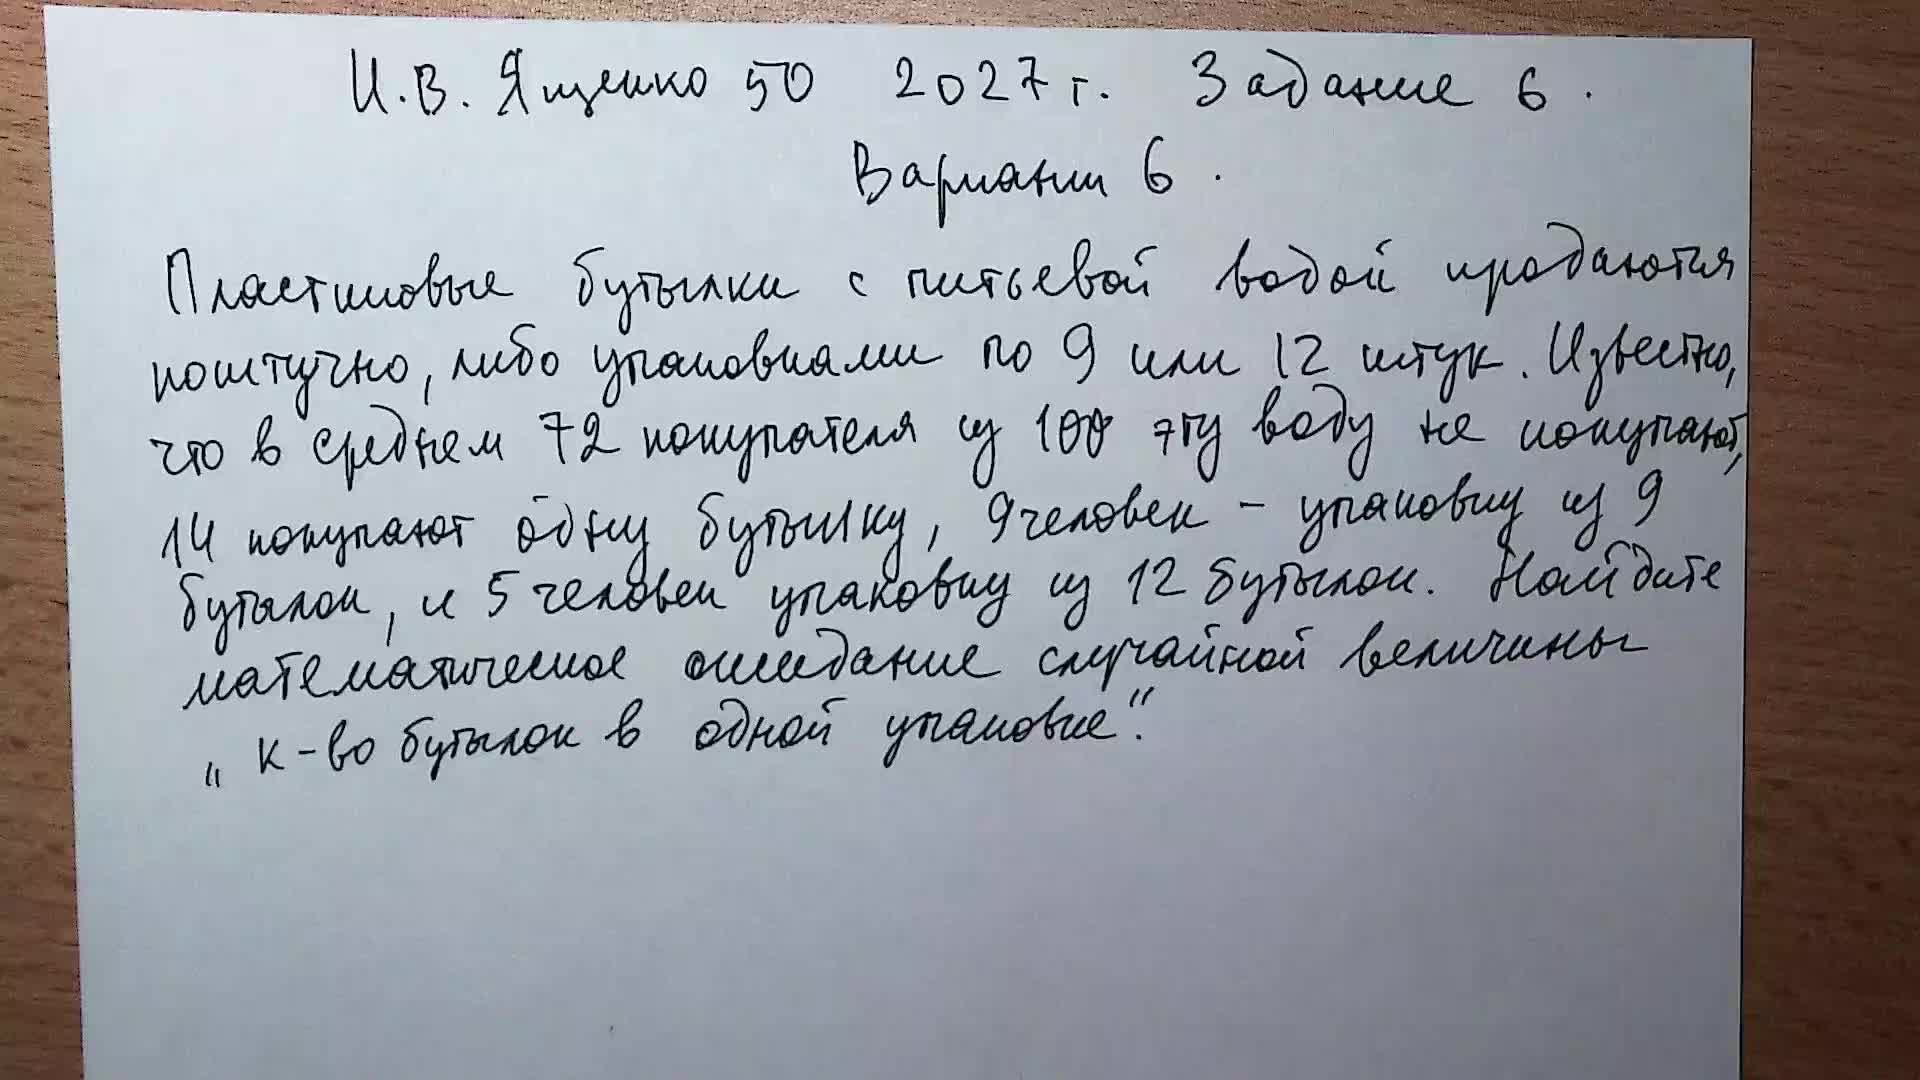 И.В. Ященко 50 2027 г. Задание 6.
Вариант 6.
Пластиковые бутылки с питьевой водой продаются
поштучно, либо упаковками по 9 или 12 штук. Известно,
что в среднем 72 покупателя из 100 эту воду не покупают,
14 покупают одну бутылку, 9 человек - упаковку из 9
бутылок, и 5 человек упаковку из 12 бутылок. Найдите
математическое ожидание случайной величины
„к-во бутылок в одной упаковке".